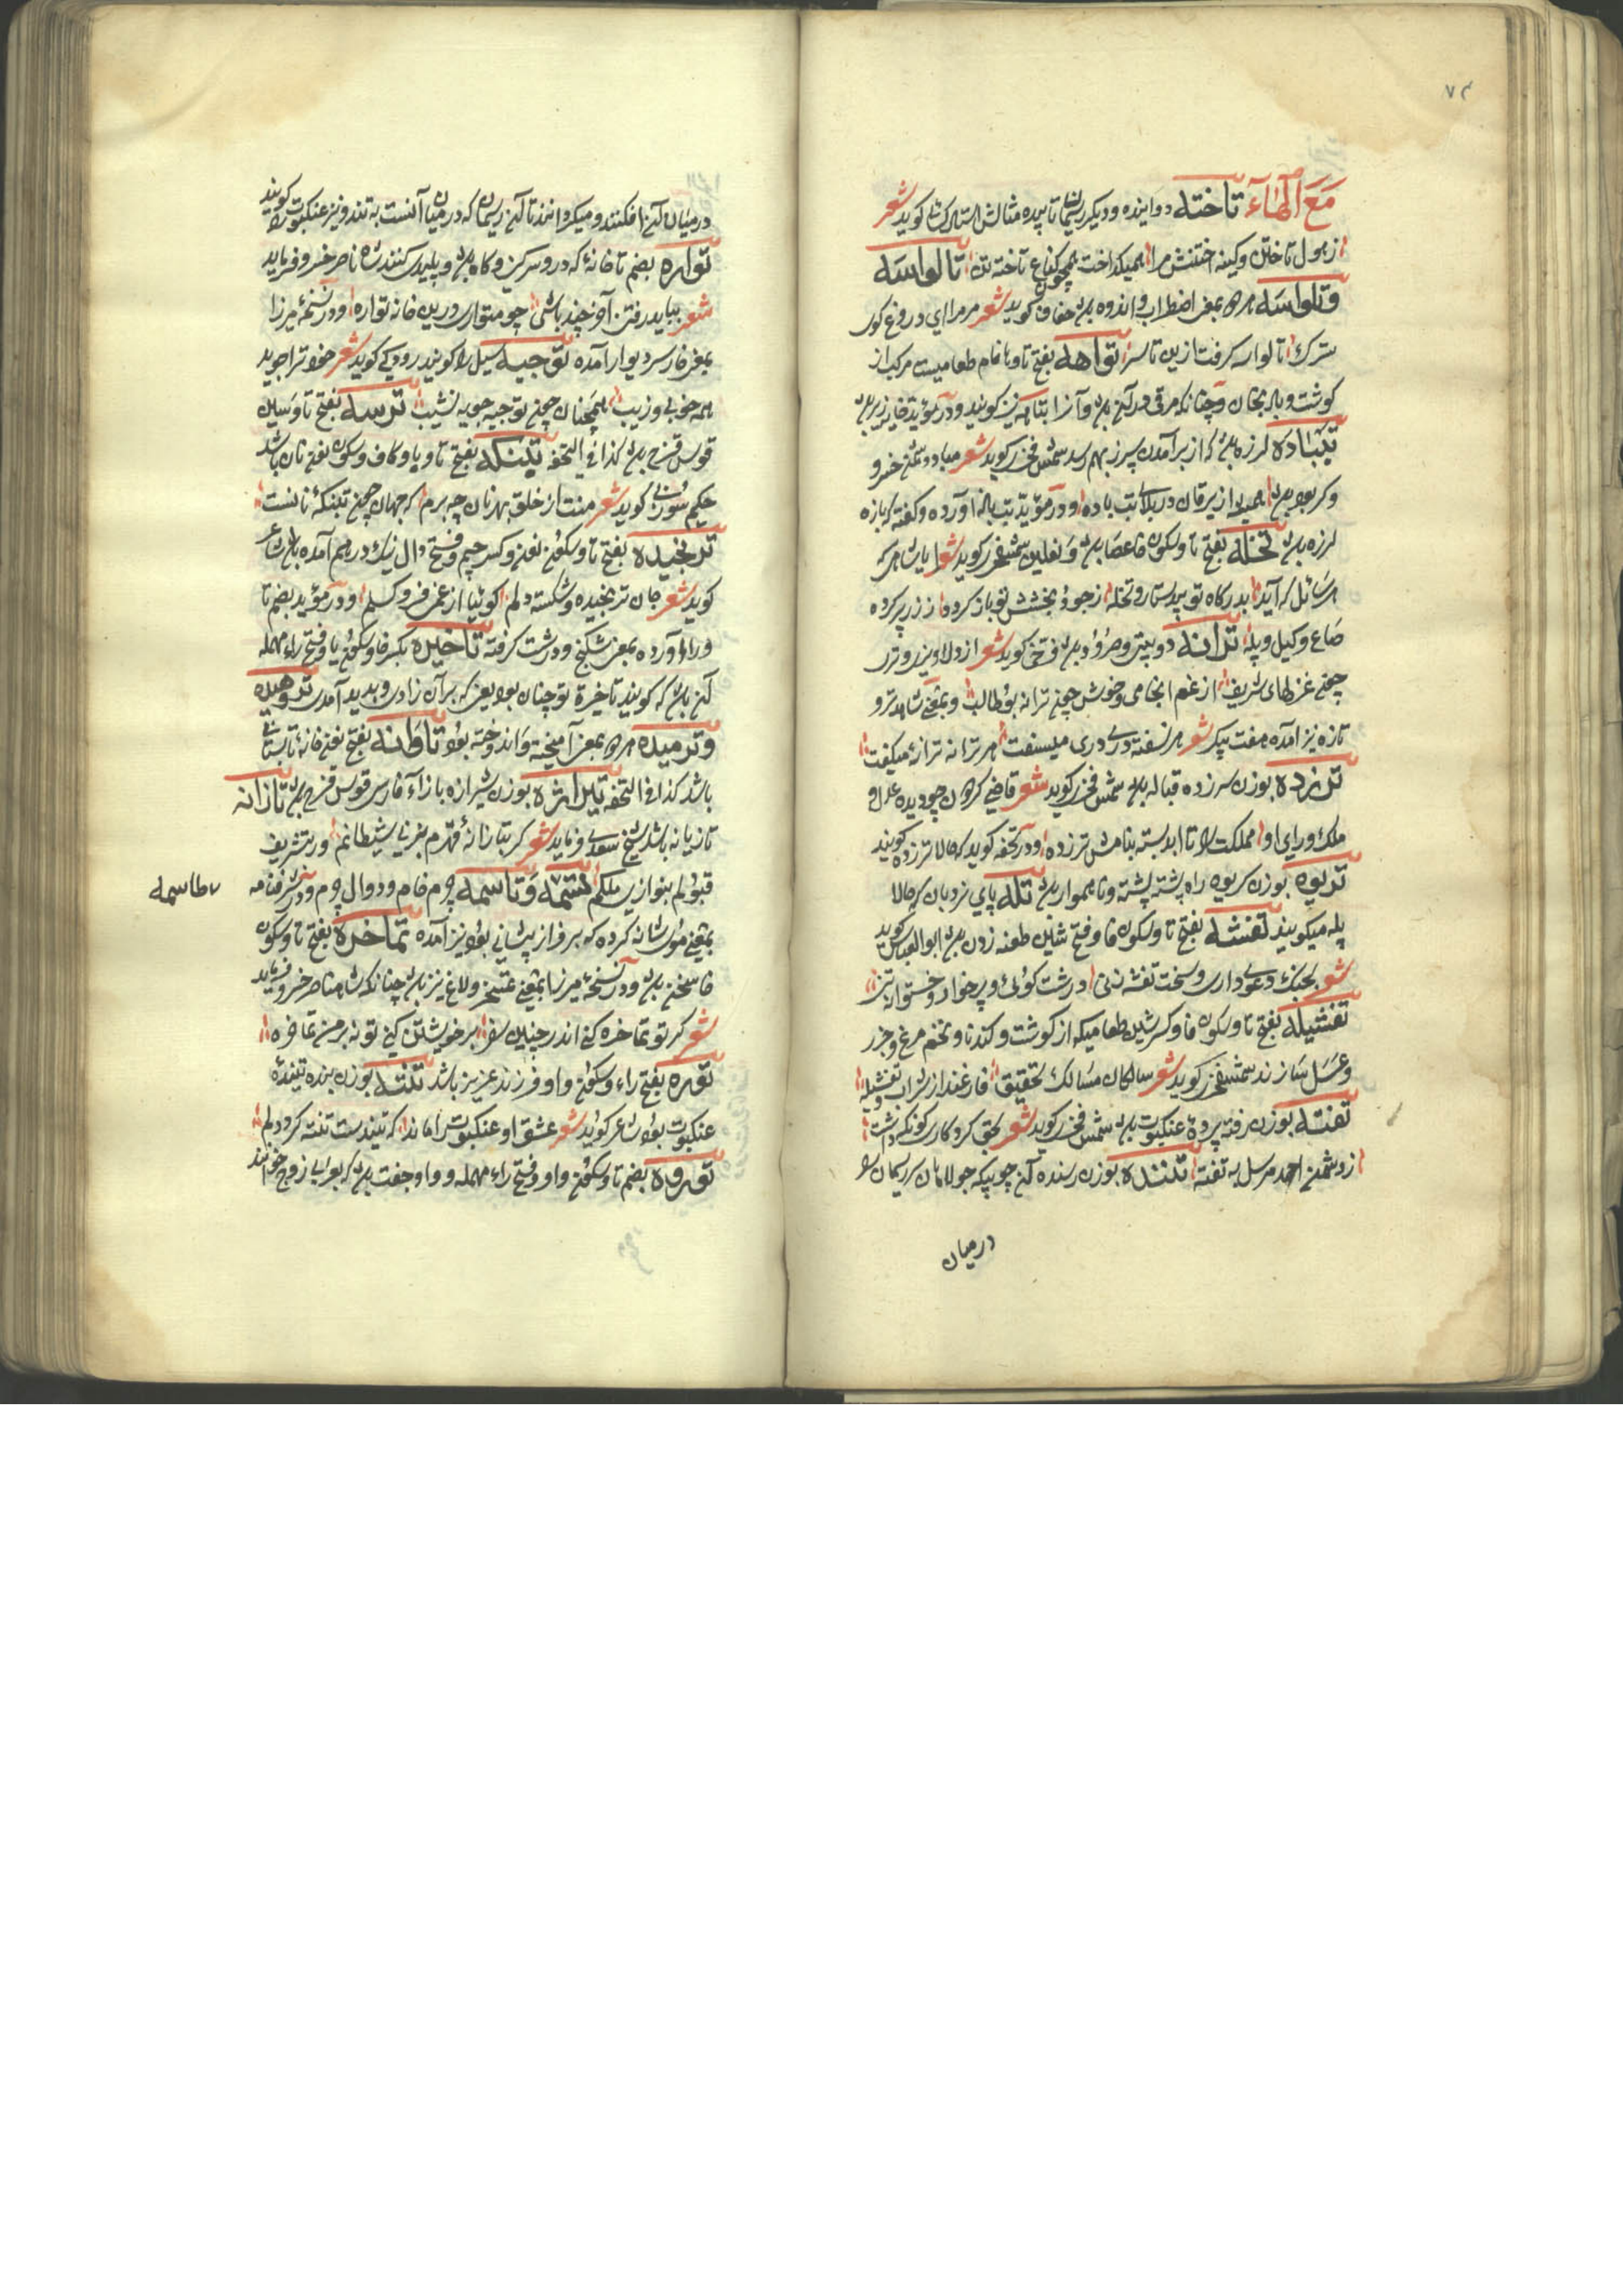 ۷۴
مَعَ الْهَاء تاخته دوانیده و دیکر ریسمان تابیده مثالش کوید شعر
از هول تاختن و کینه اختنش مرا همیکداخت همچون کناغ تاخته تن تالواسه
وتلواسه هردو بمعنی اضطراب و اندوه باشد خفاف کوید شعر مرمرا ای دروغ کوی
سترک تالواسه کرفت ازین تاسه تواهه بفتح تا وها نام طعامیست مرکب از
کوشت و بادنجان و چنانکه مرق در آن باشد و آنرا نیز کویند و در مؤید
تب باده لرزه باشد که از برآمدن سپرز بهم رسد شمس فخری کوید شعر مباد دشمن خسرو
وکر بود بود از یرقان در بلای تب باده و در مؤید تب یازه آورده و کفته که یازه
لرزه باشد تخله بفتح تا و سکون خا عصا باشد و نعلین شمس فخری کوید شعر ایا شاهی که
هر سائل که آید بدرکاه تو بی دستار و تخله ز جود و بخشش تو باز کردد ز زر پر کرده
صاع و کیل و پله ترانه دو بیتی و سرود باشد فرخی کوید شعر از دلاویزی و تری
چون غزلهای شریف از غم انجامی و خوش چون ترانه بو طالب و بمعنی شاهد تر و
تازه نیز آمده هفت پیکر شعر هر نسفته دری دری میسفت هر ترانه ترانهٔ میکفت
ترزده بوزن سرزده قباله باشد شمس فخری کوید شعر قاضی کردون چو دیده عدل و
ملک و رای او مملکت را تا ابد بسته بنامش ترزده و در تحفه کوید که حالا ترزده کویند
تریوه بوزن کریوه راه پشته پشته و ناهموار باشد تله پای نردبان که حالا
پله میکویند تفشه بفتح تا و سکون فا و فتح شین طعنه زدن باشد ابو العباس کوید
شعر بجنک دعوی داری و سخت تفشه زنی درشت کوئی و پر خوار و
تفشیله بفتح تا و سکون فا و کسر شین طعامیکه از کوشت و کندنا و تخم مرغ و جزر
و عسل سازند شمس فخری کوید شعر سالکان مسالک تحقیق فارغند از شراب و تفشیله
تفنه بوزن رفته پردهٔ عنکبوت باشد شمس فخری کوید شعر بحق کردکاری کو نکه داشت
ز دشمن احمد مرسل به تفنه تننده بوزن رسنده آن چوبیکه جولاهان ریسمان را
درمیان
درمیان آن افکنند و میکردانند تا آن ریسمان که درمیان آنست به تند و نیز عنکبوت را کویند
تواره بضم تا خانهٔ که درو سرکین و کاه باشد و پلیدی کنند شاه ناصر خسرو فرماید
شعر بباید رفتن آخر چند باشی چو متواری درین خانه تواره و در نسخهٔ میرزا
بمعنی خار سر دیوار آمده توجبه سیل را کویند رودکی کوید شعر خود ترا جوید
همه خوبی و زیب همچنان چون توجبه جوید نشیب ترسه بفتح تا و سین
قوس قزح باشد کذا فی التحفه تبنکه بفتح تا و با و کاف و سکون نون نان باشد
حکیم سوزنی کوید شعر منت از خلق بهر نان چه برم که جهان چون تبنکهٔ نانست
ترنجیده بفتح تا و سکون نون و کسر جیم و فتح دال نیک درهم آمده باشد شاعر
کوید شعر جان ترنجیده و شکسته دلم کوئیا از غم فرو کسلم و در مؤید بضم تا
و را آورده بمعنی شکنج و درشت کرفته تاخیره بکسر خا و سکون یا و فتح راء مهمله
آن باشد که کویند تاخیرهٔ تو چنان بود یعنی که بر آن زادی و پدید آمدی ترومیده
وترمیده هردو بمعنی آمیخته و اندوخته بود تاوانه بفتح نون خانهٔ تابستانی
باشد کذا فی التحفه تیراژه بوزن شیرازه بازاء فارسی قوس قزح باشد تازانه
تازیانه باشد شیخ سعدی فرماید شعر کر بتازانهٔ قهرم بزنی شیطانم ور بتشریف
قبولم بنوازی ملکم تسمه وتاسمه چرم خام و دوال چرم و در شرفنامه
بمعنی موی شانه کرده که بر فراز پیشانی بود نیز آمده تماخره بفتح تا و سکون
خا سخن باشد و در نسخهٔ میرزا بمعنی تمسخر و لاغ نیز باشد چنانکه شاه ناصر خسرو فرماید
شعر کر تو تماخره کنی اندر چنین سفر بر خویشتن کنی تو نه بر من تماخره
توره بفتح راء و سکون واو فرزند عزیز باشد تنته بوزن بنده تنیدهٔ
عنکبوت بود شاعر کوید شعر عشق او عنکبوت را ماند که تنیدست تنته کرد دلم
توروه بضم تا و سکون واو و فتح راء مهمله و واو جفت باشد که بعربی زوج خوانند
طاسمه